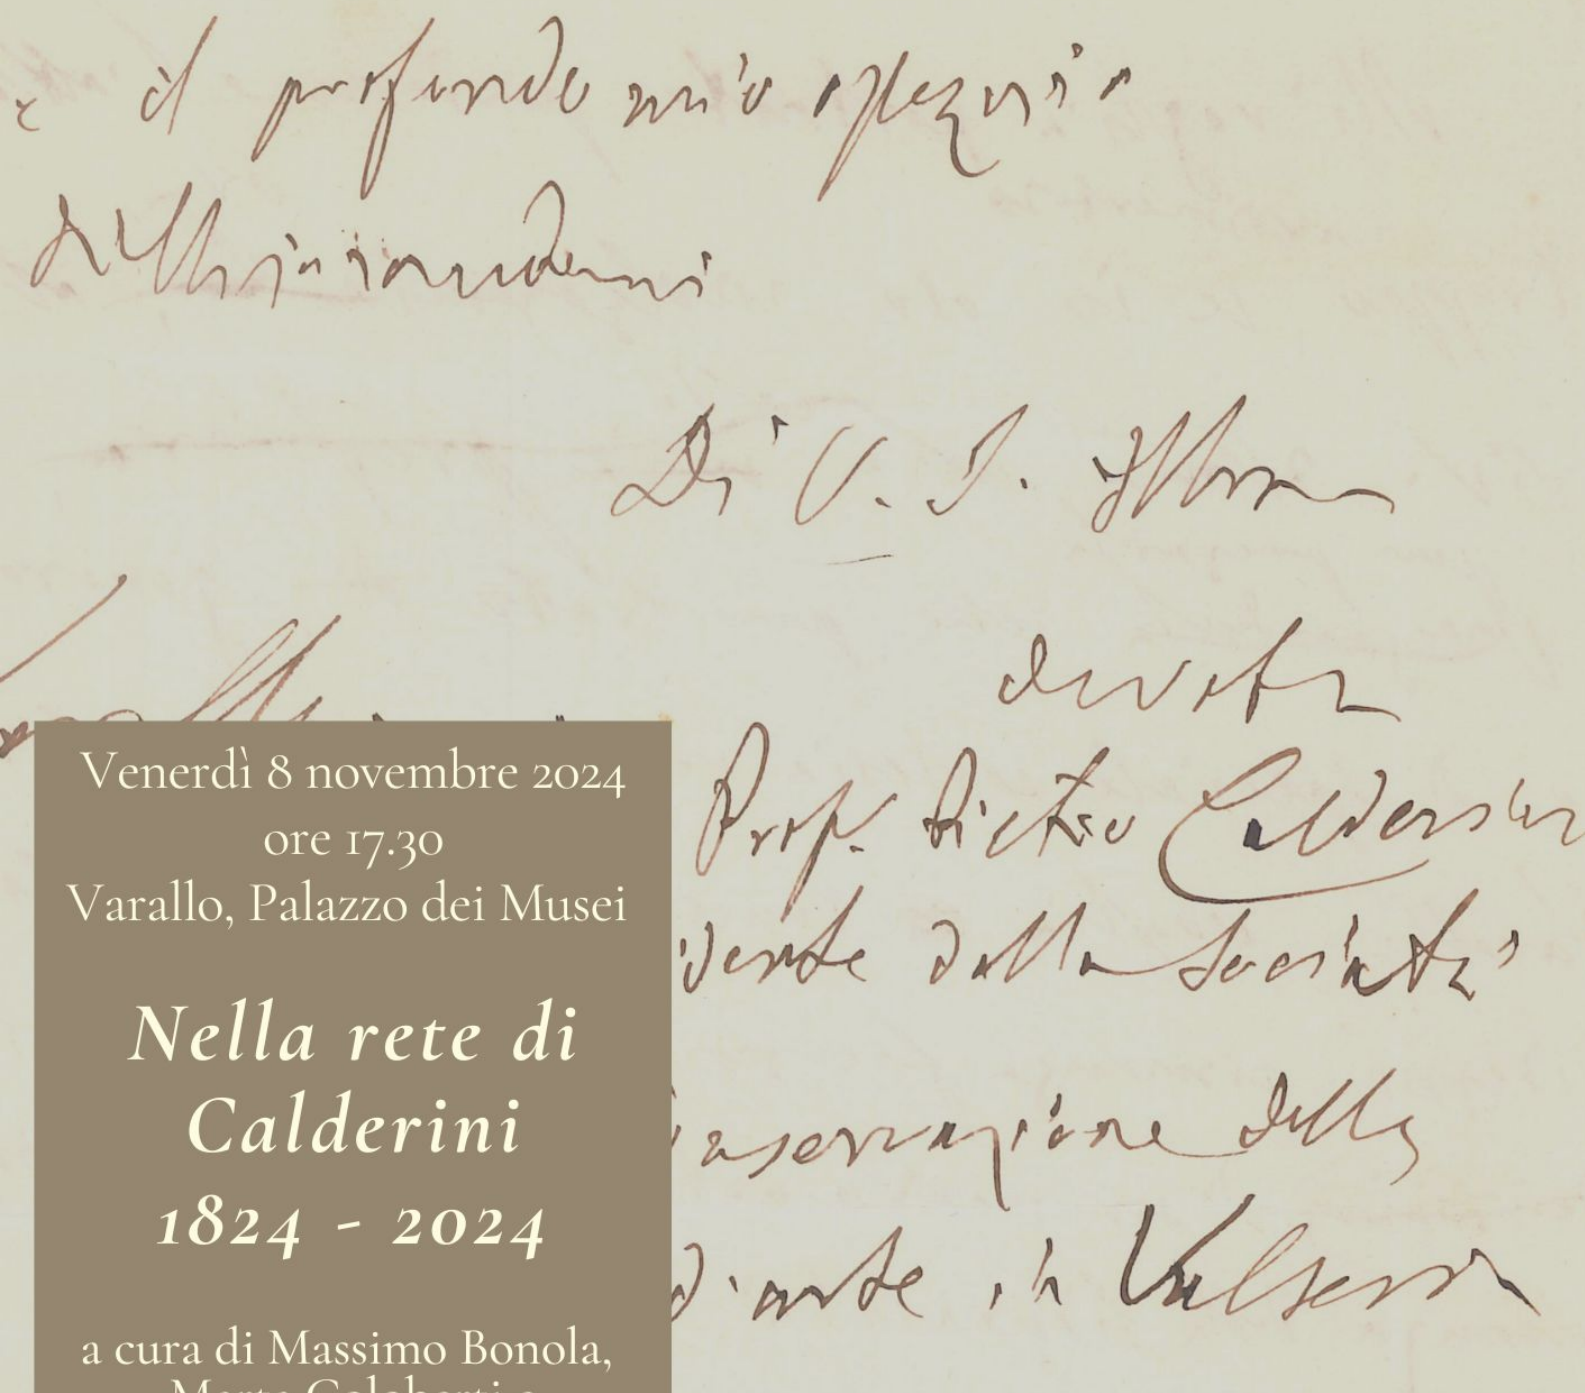 e il profondo mio
Di V. S. Ill.ma
devoto
Prof. Pietro Calderini
della Società
conservazione delle
d'arte in Valsesia
Venerdì 8 novembre 2024
ore 17.30
Varallo, Palazzo dei Musei
Nella rete di
Calderini
1824 - 2024
a cura di Massimo Bonola,